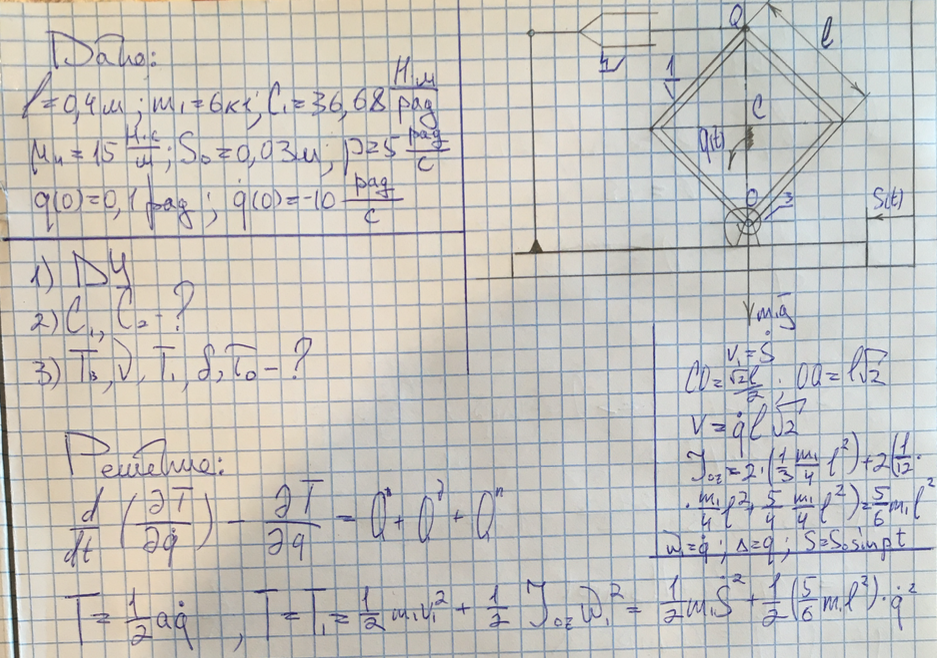 Дано:
l=0,4м; m₁=6кг; C₁=36,68 Н·м/рад
μ₄=15 Н·с/м; S₀=0,03м; p=5 рад/с
q(0)=0,1 рад; q̇(0)=-10 рад/с
1) ДУ
2) C₁, C₂ - ?
3) T₁, δ, τ₀ - ?
Q
l
1
4
C
q(t)
O
3
S(t)
m₁g̅
v₁=Ṡ
CO=√2l/2; OQ=l√2
V=q̇l√2
J₀z=2·(1/3 m₁/4 l²)+2(1/12·
·m₁/4 l²+5/4 m₁/4 l²)=5/6 m₁l²
ω₁=q̇; Δ=q; S=S₀sinpt
Решение:
d/dt (∂T/∂q̇) - ∂T/∂q = Qⁿ+Q^д+Qⁿ
T=1/2 aq̇, T=T₁=1/2 m₁v₁²+1/2 J₀z ω₁²=1/2 m₁Ṡ²+1/2(5/6 m₁l²)·q̇²